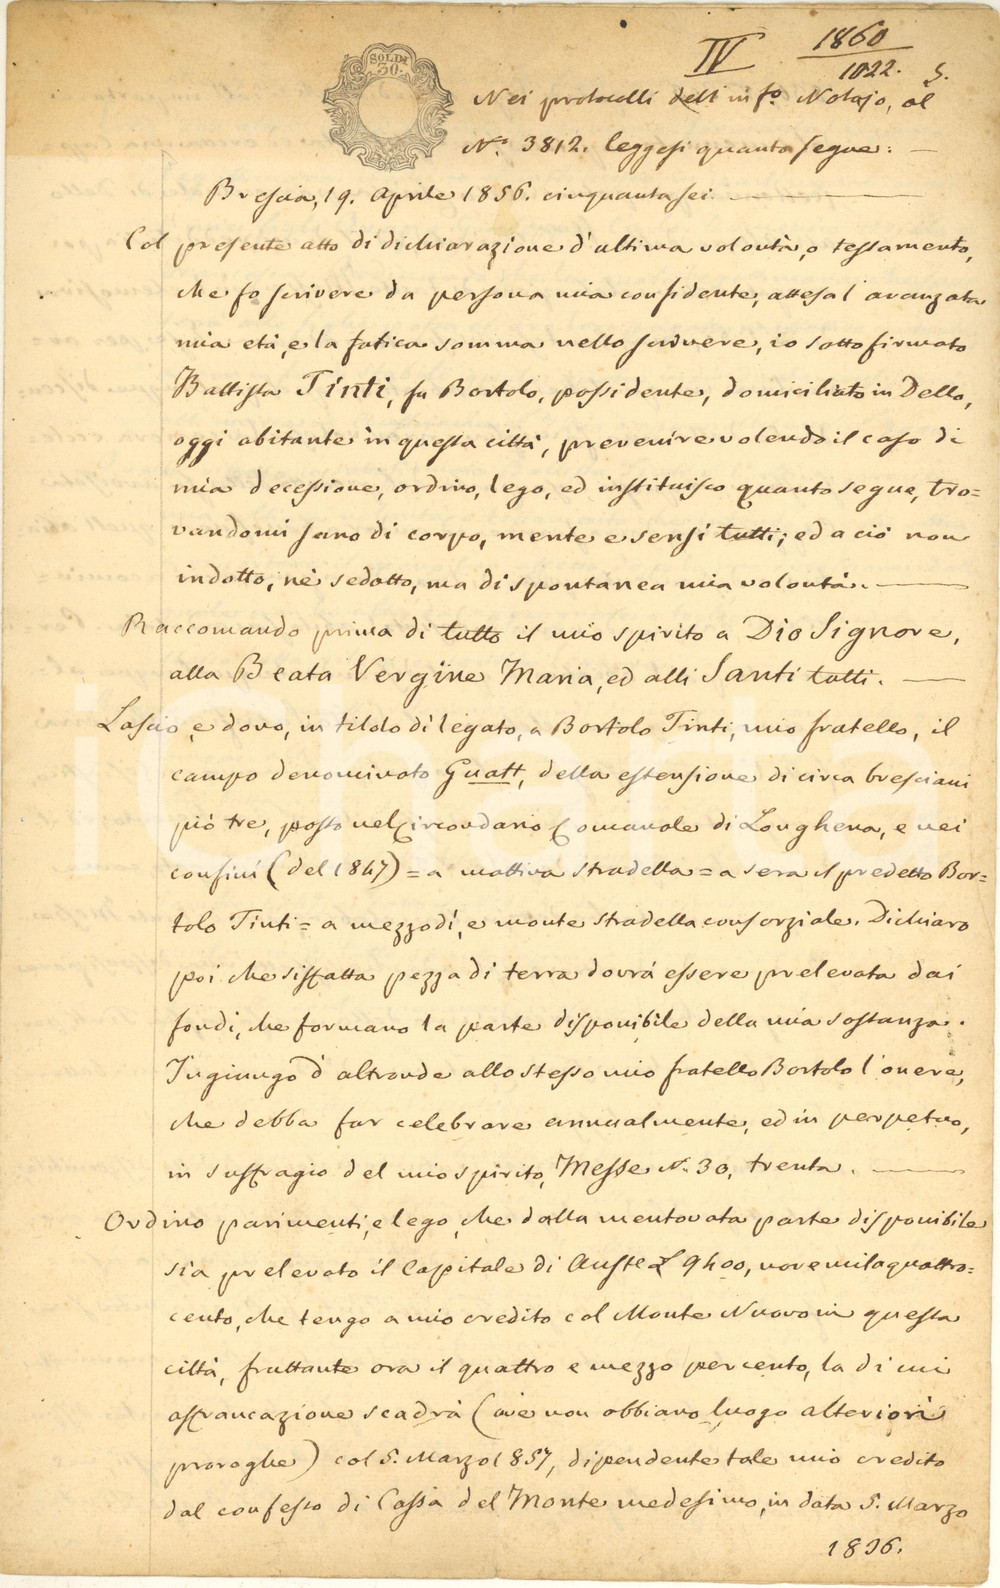 SOLDI
30.
IV 1860
1022. S.
Nei protocolli dell'info. Notajo, al
N.° 3812. leggesi quanto segue: —
Brescia, 19. Aprile 1856. cinquantasei. —
Col presente atto di dichiarazione d'ultima volontà, o testamento,
che fo scrivere da persona mia confidente, attesa l'avanzata
mia età, e la fatica somma nello scrivere, io sottofirmato
Battista Tinti, fu Bortolo, possidente, domiciliato in Dello,
oggi abitante in questa città, prevenire volendo il caso di
mia decessione, ordino, lego, ed instituisco quanto segue, tro=
vandomi sano di corpo, mente e sensi tutti; ed a ciò non
indotto, nè sedotto, ma di spontanea mia volontà. —
Raccomando prima di tutto il mio spirito a Dio Signore,
alla Beata Vergine Maria, ed alli Santi tutti. —
Lascio, e dono, in titolo di legato, a Bortolo Tinti, mio fratello, il
campo denominato Guatt, della estensione di circa bresciani
piò tre, posto nel Circondario Comunale di Longhena, e nei
confini (del 1847) = a mattina stradella = a sera il predetto Bor=
tolo Tinti = a mezzodì, e monte stradella consorziale. Dichiaro
poi che siffatta pezza di terra dovrà essere prelevata dai
fondi, che formano la parte disponibile della mia sostanza.
Ingiungo d'altronde allo stesso mio fratello Bortolo l'onere,
che debba far celebrare annualmente, ed in perpetuo,
in suffragio del mio spirito, Messe N. 30, trenta. —
Ordino parimenti, e lego, che dalla mentovata parte disponibile
sia prelevato il Capitale di Auste £ 9400, novemilaquattro=
cento, che tengo a mio credito col Monte Nuovo in questa
città, fruttante ora il quattro e mezzo per cento, la di cui
affrancazione scadrà (ove non abbiano luogo alteriori
proroghe) col 5. Marzo 1857, dipendente tale mio credito
dal confesso di Cassa del Monte medesimo, in data 5. Marzo
1836.